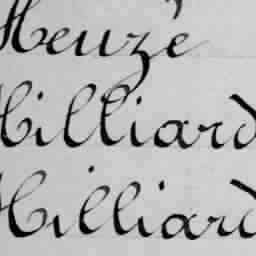 Heuzé
Hilliard
Hilliard